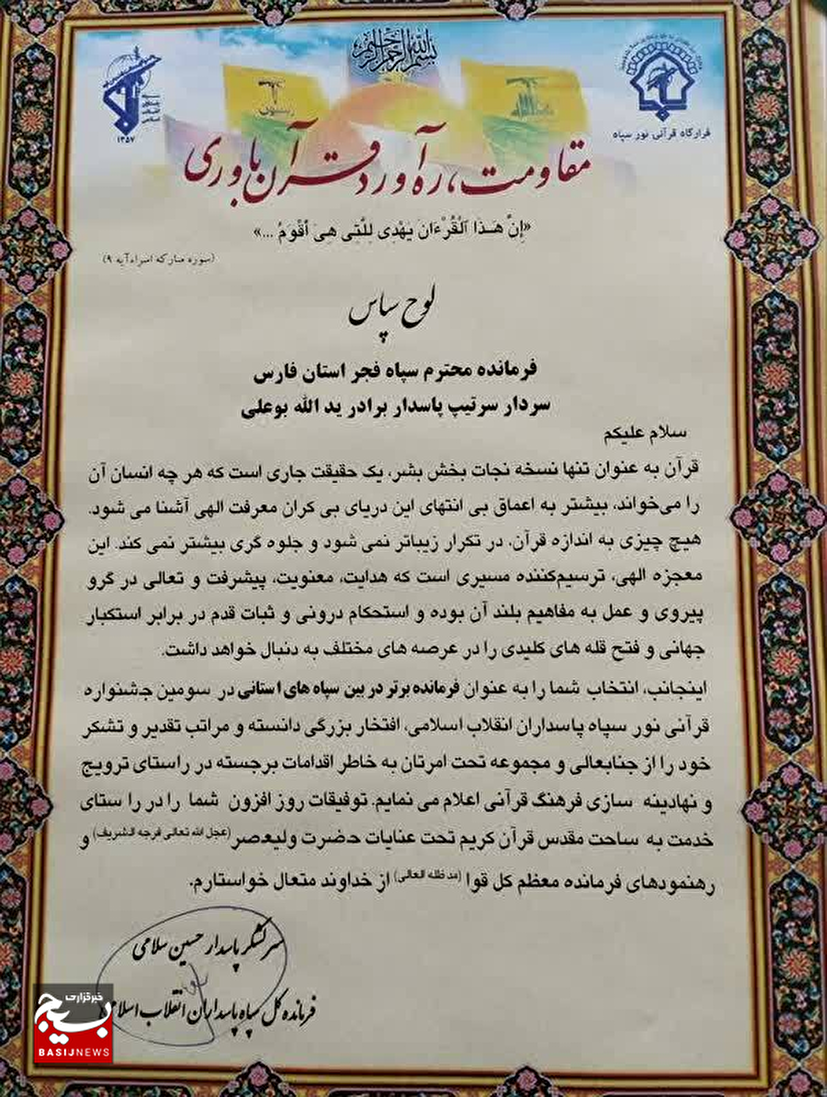 بسم الله الرحمن الرحیم
۱۳۵۷
قرارگاه قرآنی نور سپاه
مقاومت، ره‌آورد قرآن باوری
«إِنَّ هَـذَا الْقُرْءَانَ یَهْدِی لِلَّتِی هِیَ أَقْوَمُ ...»
(سوره مبارکه اسراء آیه ۹)
لوح سپاس
فرمانده محترم سپاه فجر استان فارس
سردار سرتیپ پاسدار برادر ید الله بوعلی
سلام علیکم
قرآن به عنوان تنها نسخه نجات بخش بشر، یک حقیقت جاری است که هر چه انسان آن
را می‌خواند، بیشتر به اعماق بی انتهای این دریای بی کران معرفت الهی آشنا می شود.
هیچ چیزی به اندازه قرآن، در تکرار زیباتر نمی شود و جلوه گری بیشتر نمی کند. این
معجزه الهی، ترسیم‌کننده مسیری است که هدایت، معنویت، پیشرفت و تعالی در گرو
پیروی و عمل به مفاهیم بلند آن بوده و استحکام درونی و ثبات قدم در برابر استکبار
جهانی و فتح قله های کلیدی را در عرصه های مختلف به دنبال خواهد داشت.
اینجانب، انتخاب شما را به عنوان فرمانده برتر در بین سپاه های استانی در سومین جشنواره
قرآنی نور سپاه پاسداران انقلاب اسلامی، افتخار بزرگی دانسته و مراتب تقدیر و تشکر
خود را از جنابعالی و مجموعه تحت امرتان به خاطر اقدامات برجسته در راستای ترویج
و نهادینه سازی فرهنگ قرآنی اعلام می نمایم. توفیقات روز افزون شما را در را ستای
خدمت به ساحت مقدس قرآن کریم تحت عنایات حضرت ولیعصر(عجل الله تعالی فرجه الشریف) و
رهنمودهای فرمانده معظم کل قوا (مد ظله العالی) از خداوند متعال خواستارم.
سرلشکر پاسدار حسین سلامی
فرمانده کل سپاه پاسداران انقلاب اسلامی
خبرگزاری
بسیج
BASIJNEWS